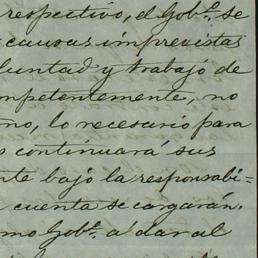 respectivo, el Gob.º se
causas imprevistas
luntad y trabajó de
mpetentemente, no
mo, lo necesario para
s continuará sus
nte bajo la responsabi=
cuenta se cargarán.
mo Gob.º a dar al